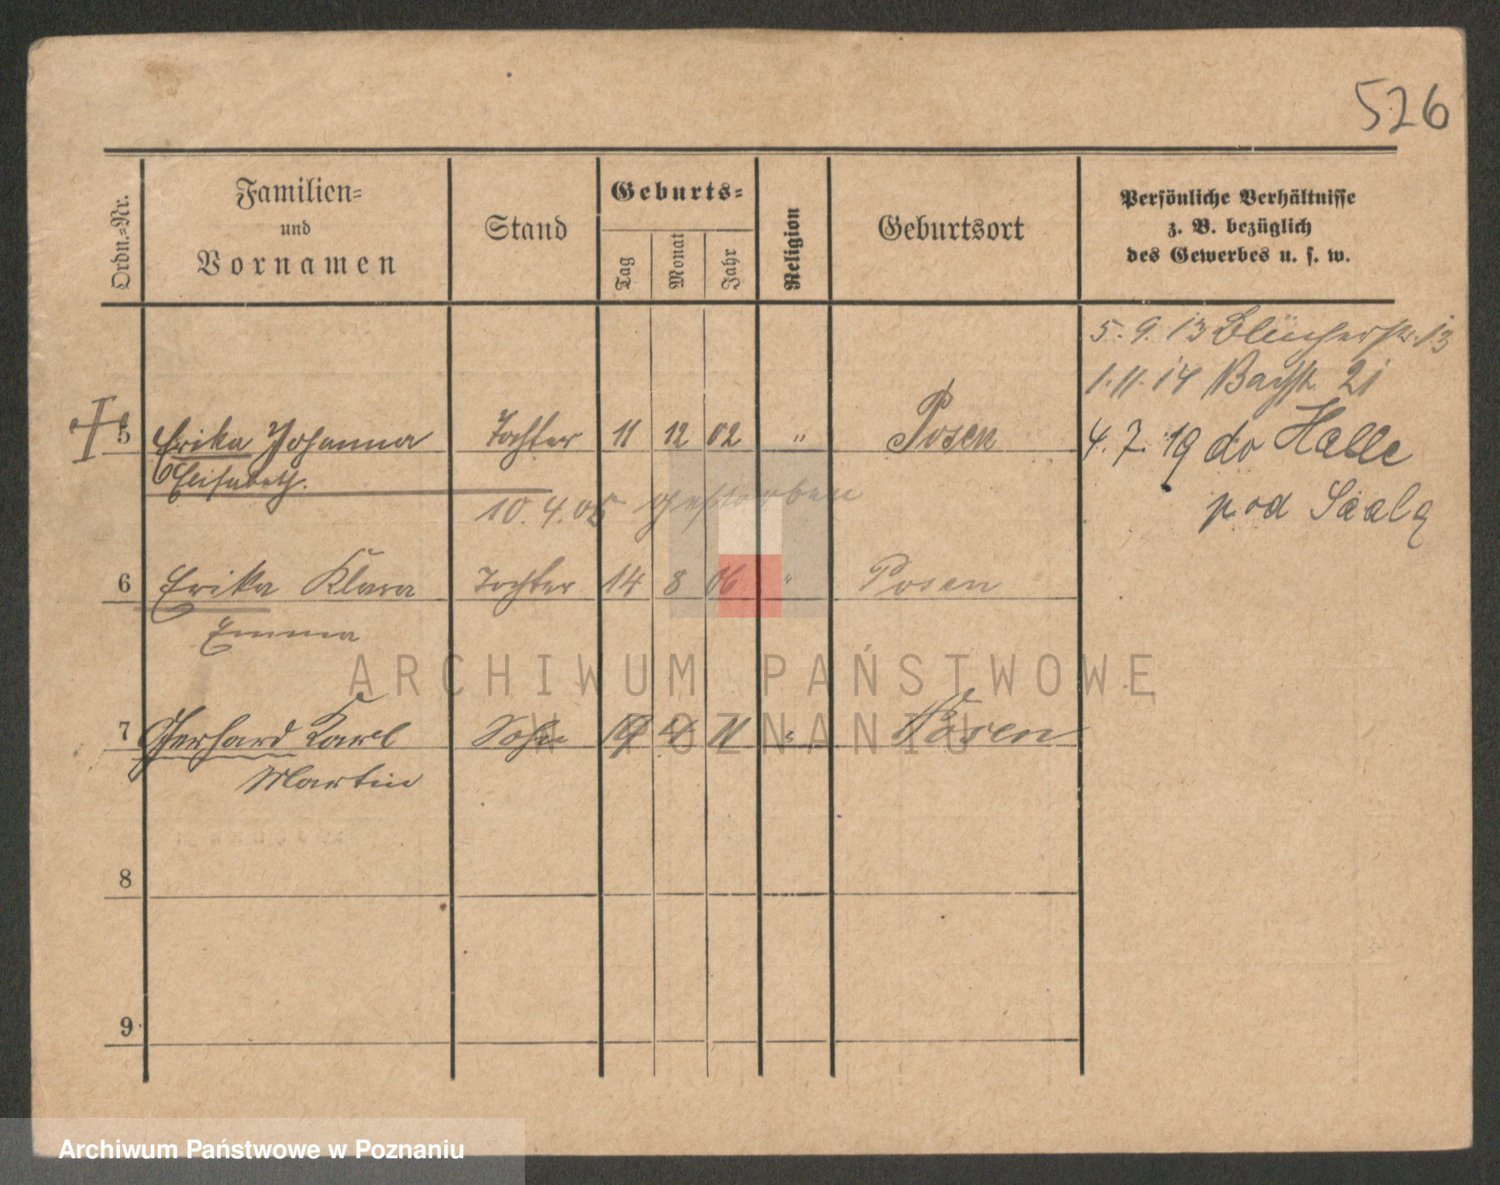 526
Ordn.-Nr.
Familien-
und
Vornamen
Stand
Geburts-
Tag
Monat
Jahr
Religion
Geburtsort
Persönliche Verhältnisse
z. B. bezüglich
des Gewerbes u. s. w.
5. 9. 13 Blücherstr. 13
1. 11. 14 Bachstr. 21
5 Erika Johanna Tochter 11 12 02 " Posen
Elisabeth.
4. 7. 19 do Halle
10. 4. 05 gestorben
pod Saalą
6 Erika Klara Tochter 14 8 06 " Posen
Emma
7 Gerhard Karl Sohn 19 4 11 " Posen
Martin
8
9
ARCHIWUM PAŃSTWOWE
W POZNANIU
Archiwum Państwowe w Poznaniu